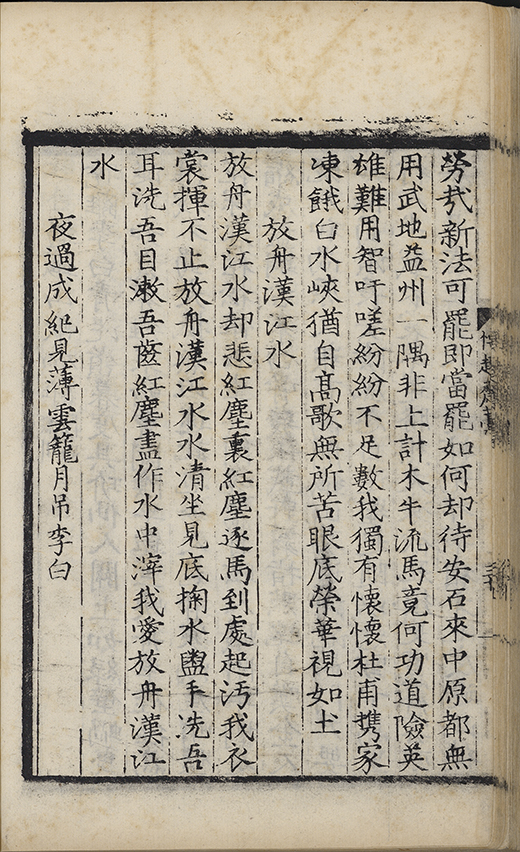 勞㢤新法可罷即當罷如何却待安石來中原都無
用武地益州一隅非上計木牛流馬竟何功道險英
雄難用智吁嗟紛紛不足數我獨有懷懷杜甫携家
凍餓白水峽猶自髙歌無所苦眼底榮華視如土
放舟漢江水
放舟漢江水却悲紅塵裏紅塵逐馬到處起汚我衣
裳揮不止放舟漢江水水清坐見底掬水盥手洗吾
耳洗吾目漱吾齒紅塵盡作水中滓我愛放舟漢江
水
夜過成紀見薄雲籠月吊李白